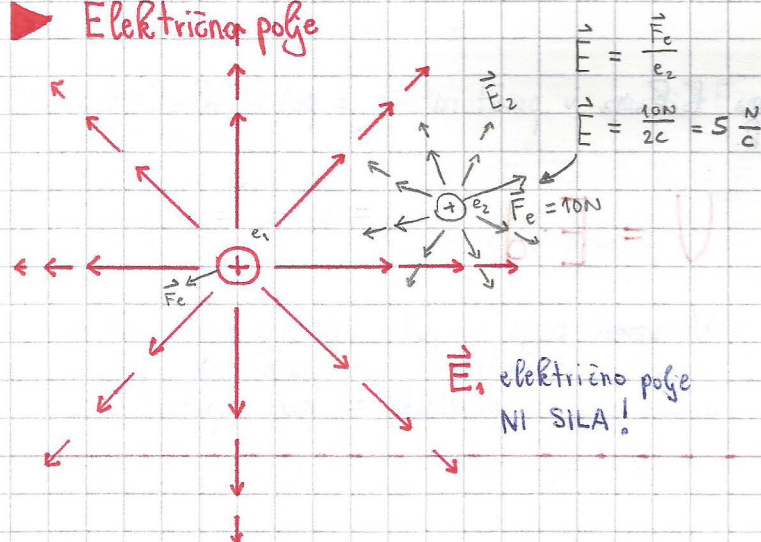 Električno polje
E⃗ = F⃗e / e₂
E⃗ = 10N / 2C = 5 N/C
E⃗₂
e₂
F⃗e = 10N
e₁
F⃗e
+
+
E⃗₁ električno polje
NI SILA!